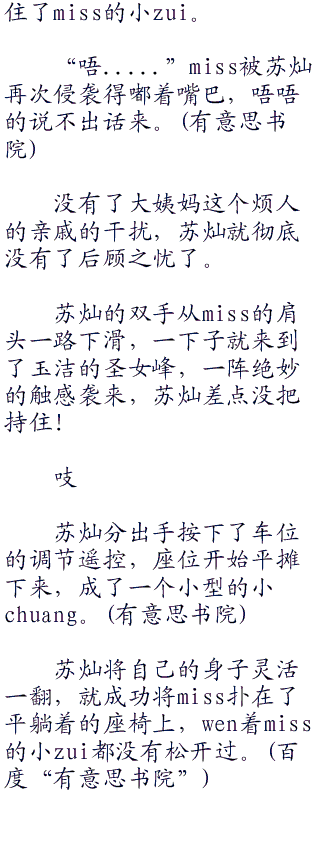 住了miss的小zui。
“唔.....”miss被苏灿
再次侵袭得嘟着嘴巴，唔唔
的说不出话来。(有意思书
院)
没有了大姨妈这个烦人
的亲戚的干扰，苏灿就彻底
没有了后顾之忧了。
苏灿的双手从miss的肩
头一路下滑，一下子就来到
了玉洁的圣女峰，一阵绝妙
的触感袭来，苏灿差点没把
持住!
吱
苏灿分出手按下了车位
的调节遥控，座位开始平摊
下来，成了一个小型的小
chuang。(有意思书院)
苏灿将自己的身子灵活
一翻，就成功将miss扑在了
平躺着的座椅上，wen着miss
的小zui都没有松开过。(百
度“有意思书院”)